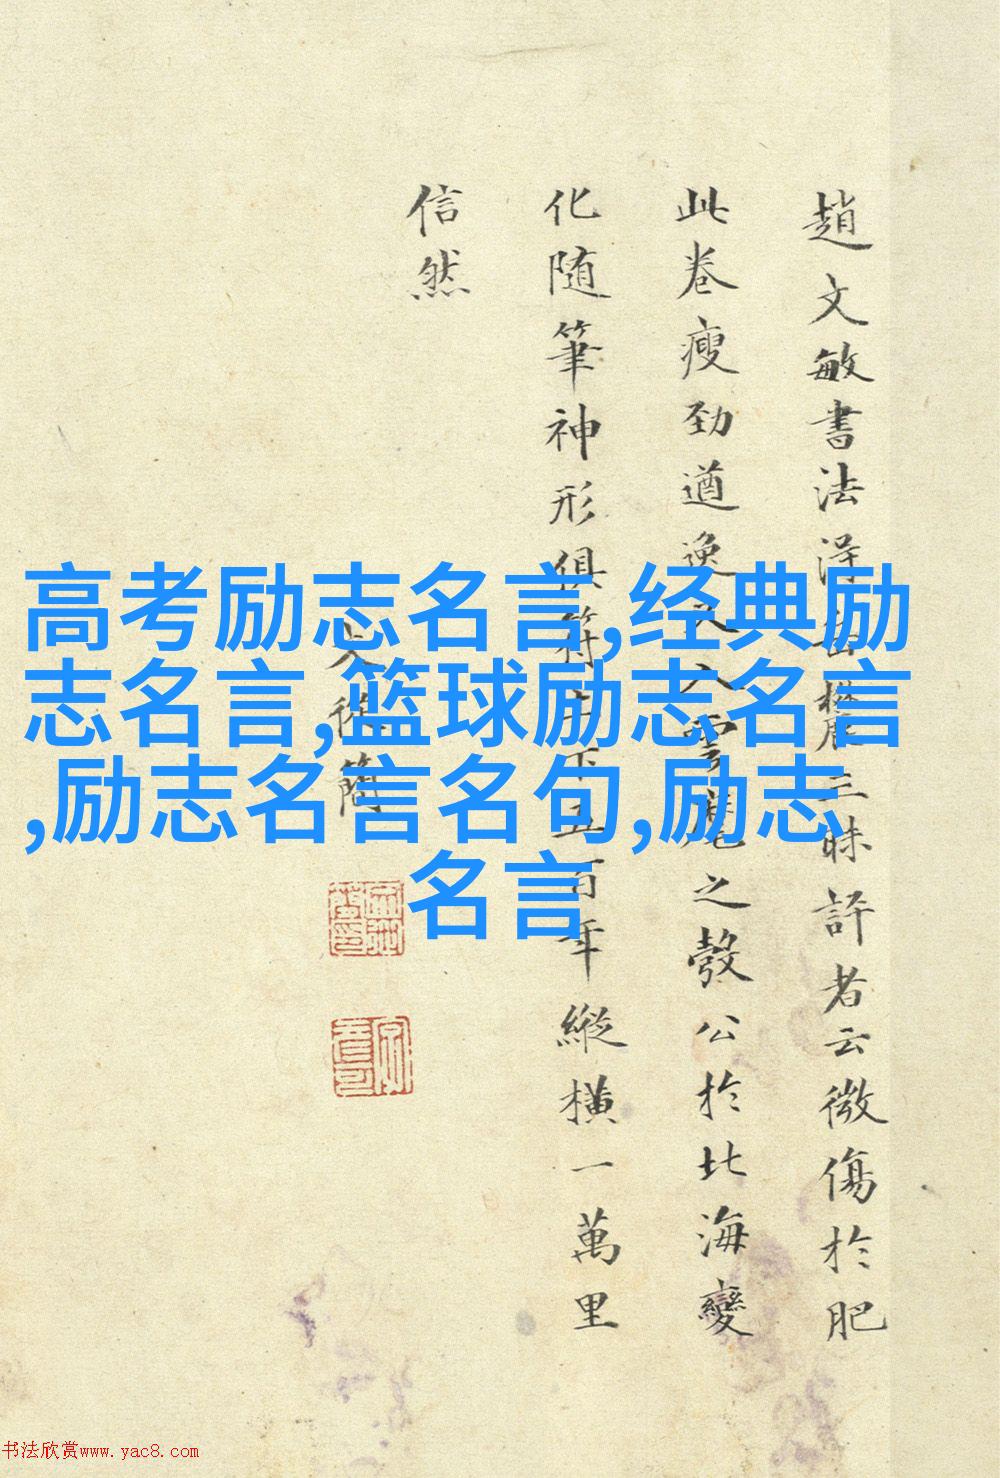 趙文敏書法得岳麓三昧評者云微傷於肥
此卷瘦劲遒逸入雲麾之彀公於北海變
化随筆神形俱符下五百年縱橫一萬里
信然
高考励志名言,经典励
志名言,篮球励志名言
,励志名言名句,励志
名言
书法欣赏www.yac8.com